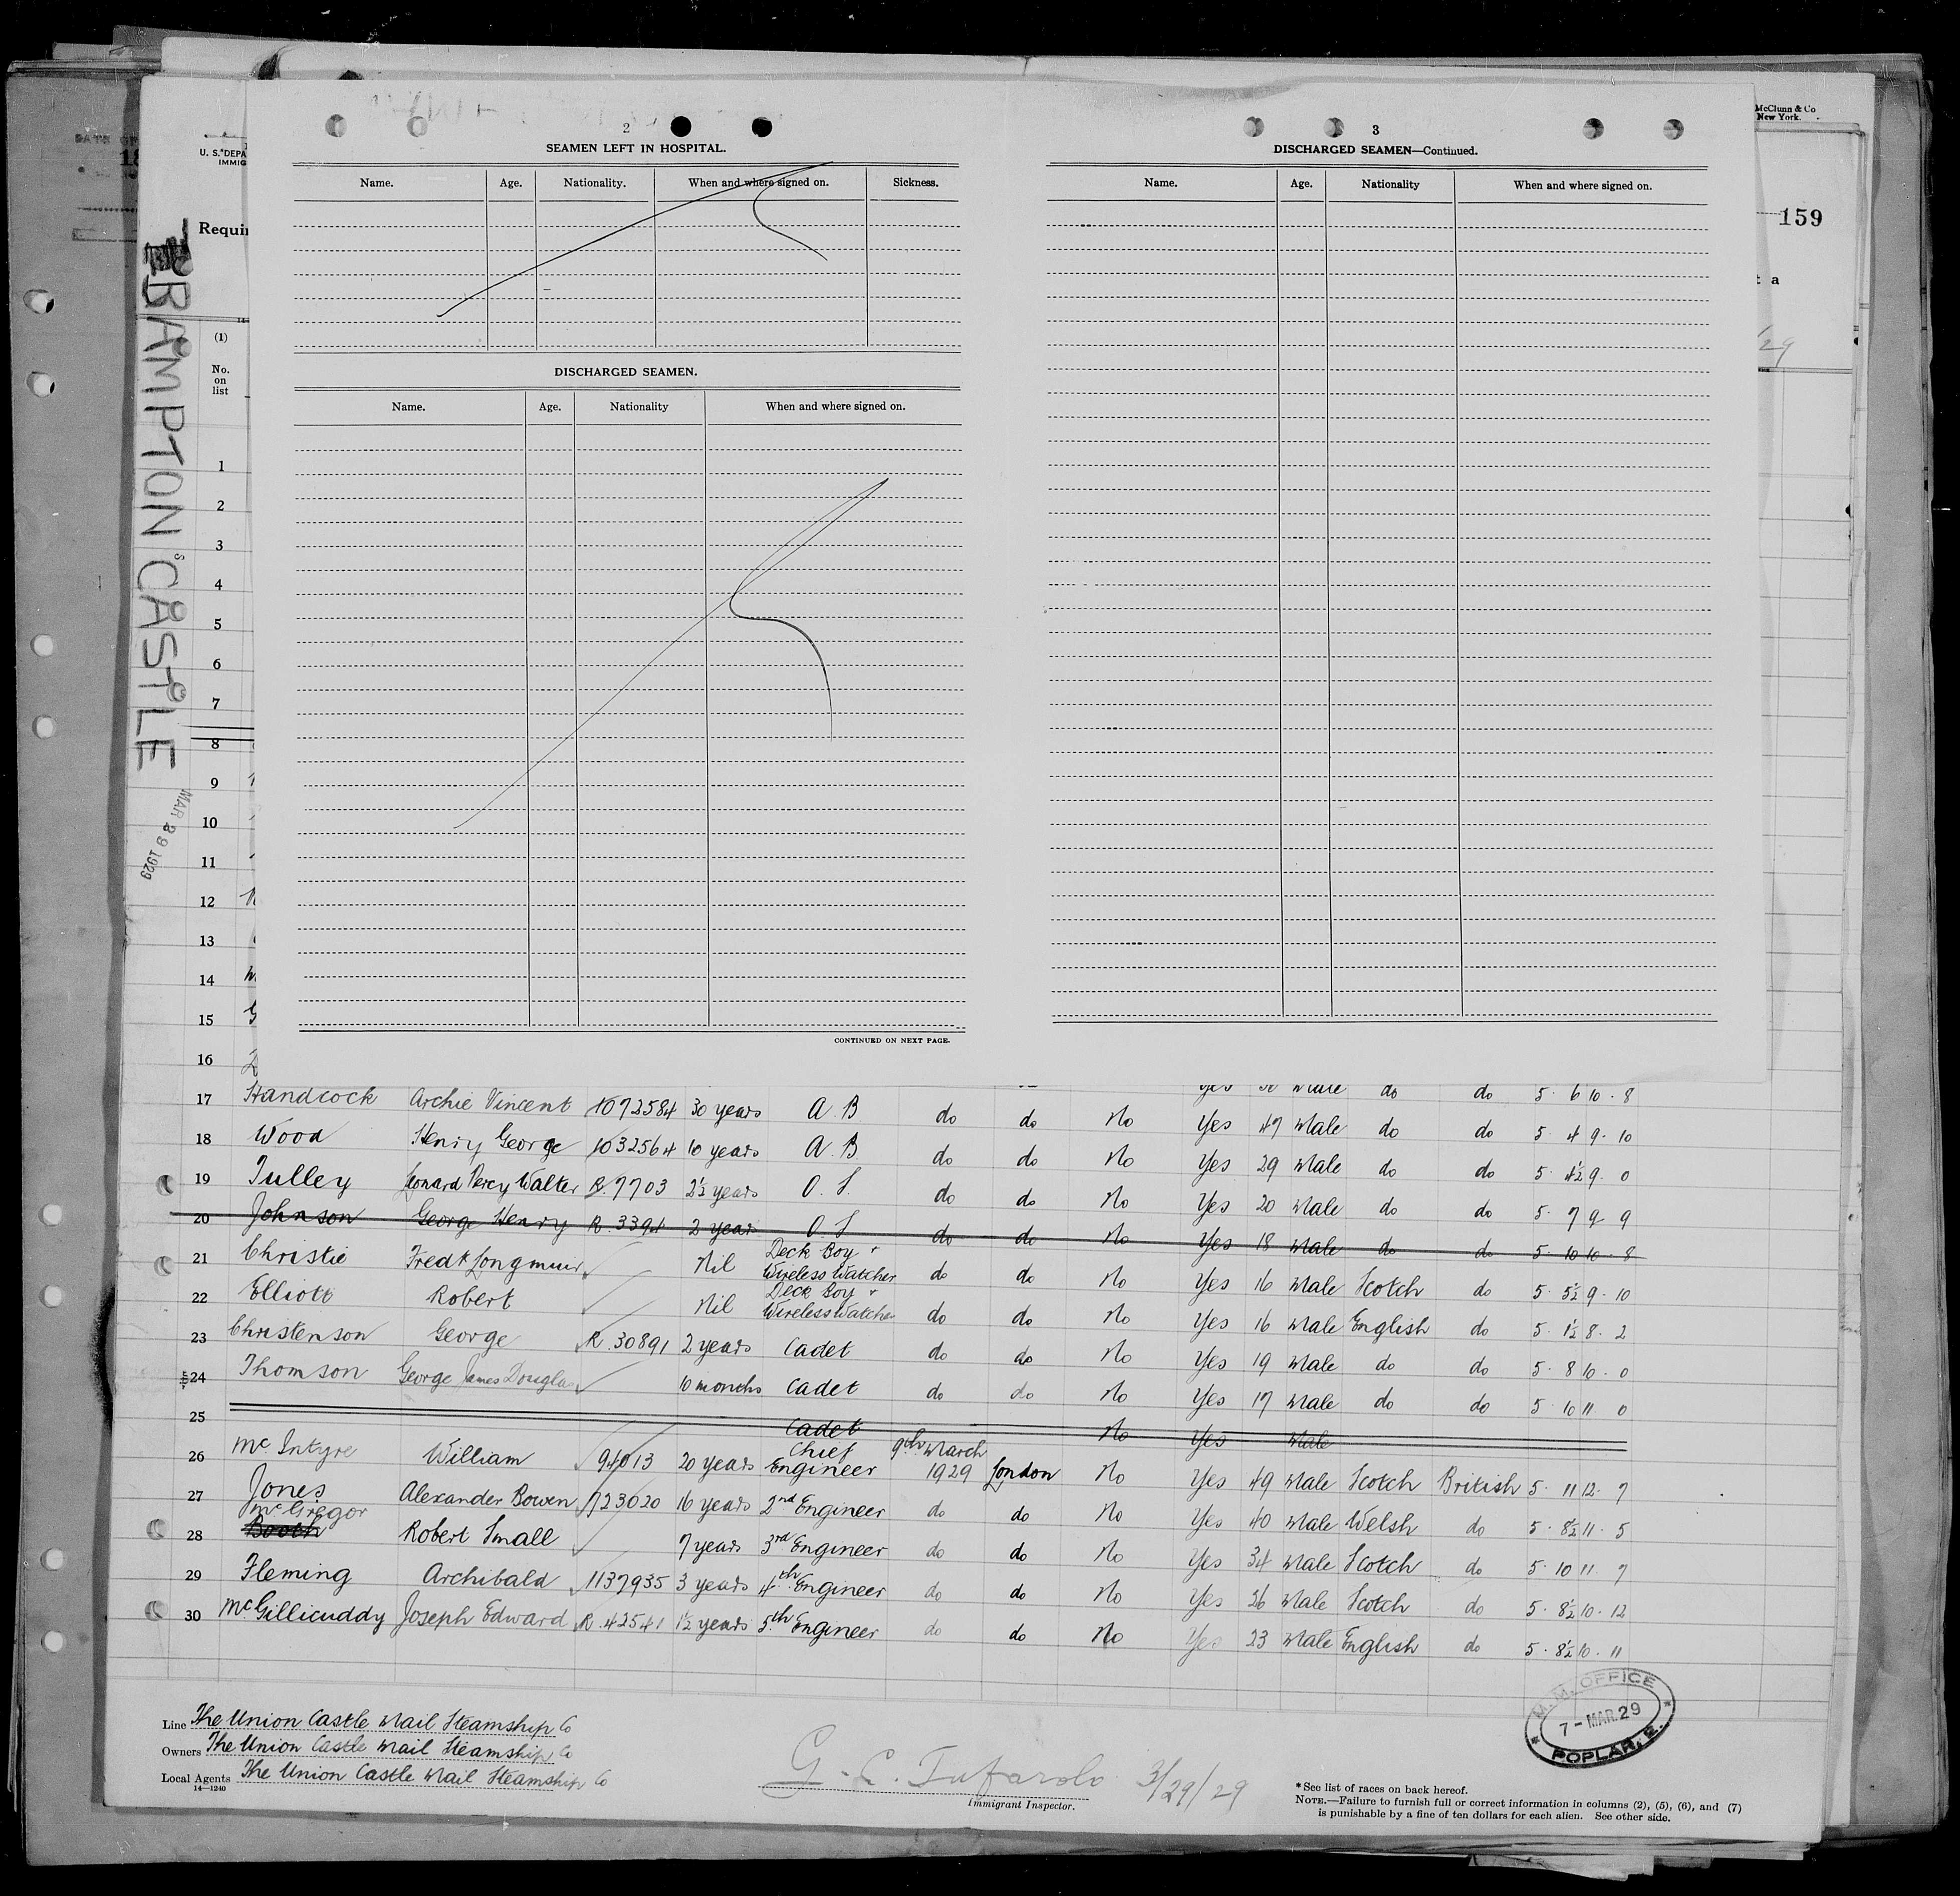 McClunn & Co
New York.
159
2
SEAMEN LEFT IN HOSPITAL.
Name. Age. Nationality. When and where signed on. Sickness.
DISCHARGED SEAMEN.
Name. Age. Nationality When and where signed on.
CONTINUED ON NEXT PAGE.
3
DISCHARGED SEAMEN—Continued.
Name. Age. Nationality When and where signed on.
U. S. DEPA
IMMIG
Requir
BRAMPTON CASTLE
MAR 29 1929
(1)
No.
on
list
1
2
3
4
5
6
7
8
9
10
11
12
13
14
15
16
17 Handcock Archie Vincent 1072584 30 years A.B do do No Yes 47 Male do do 5 4 9 10
18 Wood Henry George 1032564 10 years A.B do do No Yes 29 Male do do 5 4½ 9 0
19 Tulley Leonard Percy Walter R.7703 2½ years O.S. do do No Yes 20 Male do do 5 7 9 9
20 Johnson George Henry R.3394 2 years O.S do do No Yes 18 Male do do 5 10 10 8
21 Christie Fredk Longmuir Nil Deck Boy + Wireless Watcher do do No Yes 16 Male Scotch do 5 5½ 9 10
22 Elliott Robert Nil Deck Boy + Wireless Watcher do do No Yes 16 Male English do 5 1½ 8 2
23 Christenson George R.30891 2 years Cadet do do No Yes 19 Male do do 5 8 10 0
24 Thomson George James Douglas 10 months Cadet do do No Yes 17 Male do do 5 10 11 0
25 Cadet No Yes Male
26 McIntyre William 94013 20 years Chief Engineer 9th March 1929 London No Yes 49 Male Scotch British 5 11 12 7
27 Jones Alexander Bowen 723020 16 years 2nd Engineer do do No Yes 40 Male Welsh do 5 8½ 11 5
28 McGregor Booth Robert Small 7 years 3rd Engineer do do No Yes 34 Male Scotch do 5 10 11 7
29 Fleming Archibald 1137935 3 years 4th Engineer do do No Yes 26 Male Scotch do 5 8½ 10 12
30 McGillicuddy Joseph Edward R.42541 1½ years 5th Engineer do do No Yes 23 Male English do 5 8½ 10 11
Line The Union Castle Mail Steamship Co
Owners The Union Castle Mail Steamship Co
Local Agents The Union Castle Mail Steamship Co
14—1240
G. C. Tufarolo 3/29/29
Immigrant Inspector.
M.M. OFFICE
7-MAR.29
POPLAR, E.
*See list of races on back hereof.
NOTE.—Failure to furnish full or correct information in columns (2), (5), (6), and (7)
is punishable by a fine of ten dollars for each alien. See other side.